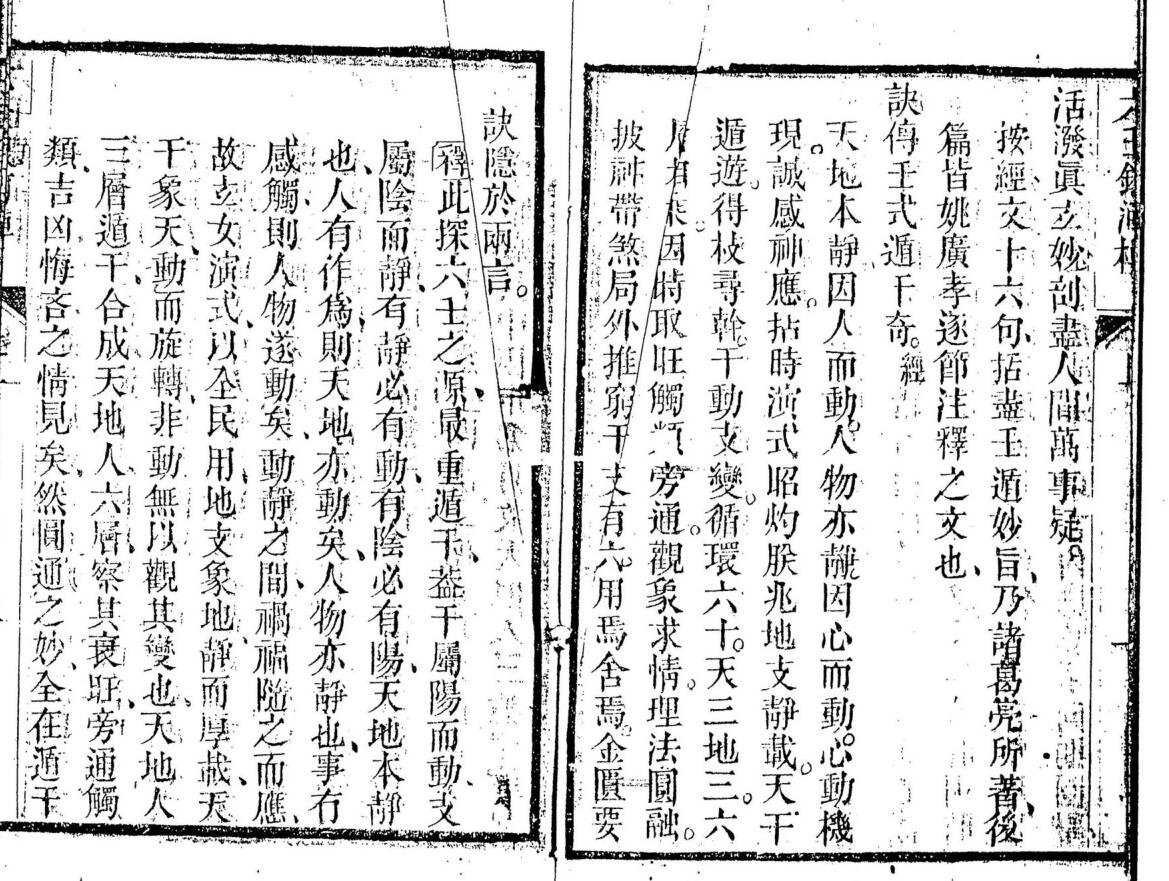 活潑眞玄妙剖盡人間萬事疑。
按經文十六句、括盡壬遁妙旨、乃諸葛亮所著、後
篇皆姚廣孝逐節注釋之文也、
訣傳壬式遁干奇。經
天地本靜因人而動。人物亦靜因心而動。心動機
現。誠感神應。拈時演式昭灼朕兆地支靜載。天干
遁遊。得枝尋幹。干動支變。循環六十。天三地三。六
因時取旺觸類旁通。觀象求情。理法圓融。
披神帶煞局外推窮干支有六。用焉舍焉。金匱要
訣隱於兩言。
釋此探六壬之源、最重遁干、蓋干屬陽而動、支
屬陰而靜、有靜必有動、有陰必有陽、天地本靜
也、人有作爲、則天地亦動矣、人物亦靜也、事有
感觸、則人物遂動矣、動靜之間、禍福隨之而應、
故玄女演式、以全民用、地支象地、靜而厚載、天
干象天、動而旋轉、非動無以觀其變也、天地人
三層遁干、合成天地人六層、察其衰旺、旁通觸
類、吉凶悔吝之情見矣、然圓通之妙、全在遁干